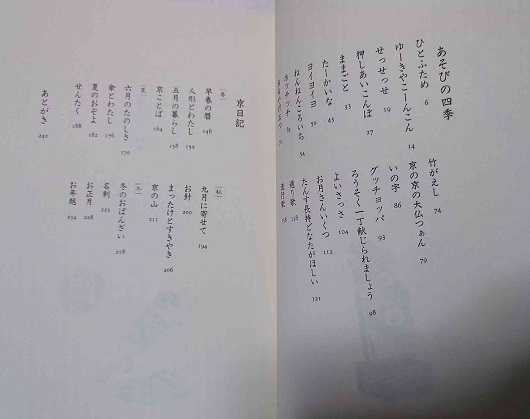 あそびの四季
ひとふため 6
ゆーきやこーんこん 14
せっせっせ 19
押しあいこんぼ 27
ままごと 33
たーかいな 43
ヨイヨイヨ 50
ねんねんころいち 54
竹がえし 74
京の京の大仏つぁん 79
いの字 86
グッチョッパ 93
ろうそく一丁献じられましょう 98
よいさっさ 104
お月さんいくつ 112
たんす長持どなたがほしい 121
通り歌
京日記
［春］
早春の暦 146
人形とわたし 152
五月の暮らし 158
京ことば 164
［夏］
六月のたのしさ 170
傘とわたし 176
夏のおぞよ 182
せんたく 188
［秋］
九月に寄せて 194
お針 200
まったけとすきやき 206
京の山 211
［冬］
冬のおばんざい 218
名刺 223
お正月 228
お年越 234
あとがき 240